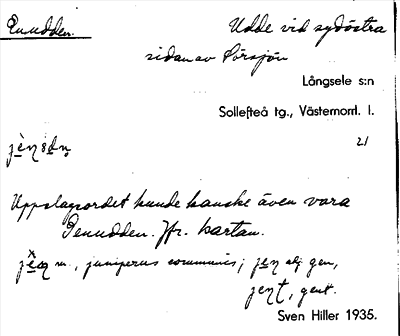 Enudden. Udde vid sydöstra
sidan av Görsjön
Långsele s:n
Sollefteå tg., Västernorrl. l.
21
Uppslagsordet kunde kanske även vara
Genudden. Jfr. kartan.
m., juniperus communis; gen,
Sven Hiller 1935.